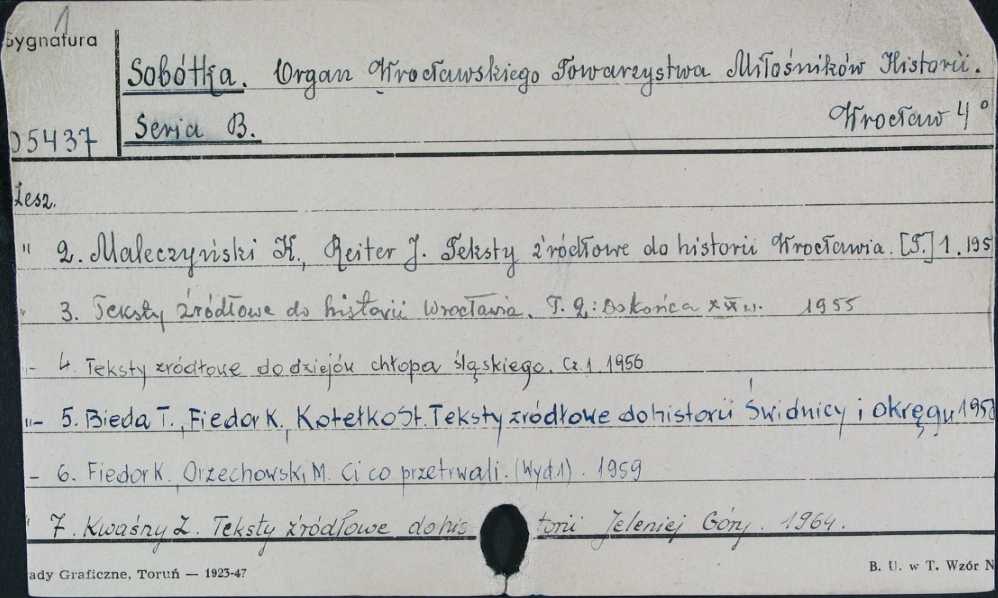 1
Sygnatura
Sobótka. Organ Wrocławskiego Towarzystwa Miłośników Historii.
Seria B. Wrocław 4°
05437
Zesz.
" 2. Maleczyński K., Reiter J. Teksty źródłowe do historii Wrocławia. [T.] 1. 195
" 3. Teksty źródłowe do historii Wrocławia. T. 2: Do końca w. 1955
- 4. Teksty źródłowe do dziejów chłopa śląskiego. Cz. 1. 1956
"- 5. Bieda T., Fiedor K., Kotełko St. Teksty źródłowe do historii Świdnicy i okręgu 1958
- 6. Fiedor K. Orzechowski M. Ci co przetrwali. (Wyd. 1). 1959
" 7. Kwaśny Z. Teksty źródłowe do historii Jeleniej Góry. 1964.
ady Graficzne, Toruń — 1923-47 B. U. w T. Wzór N